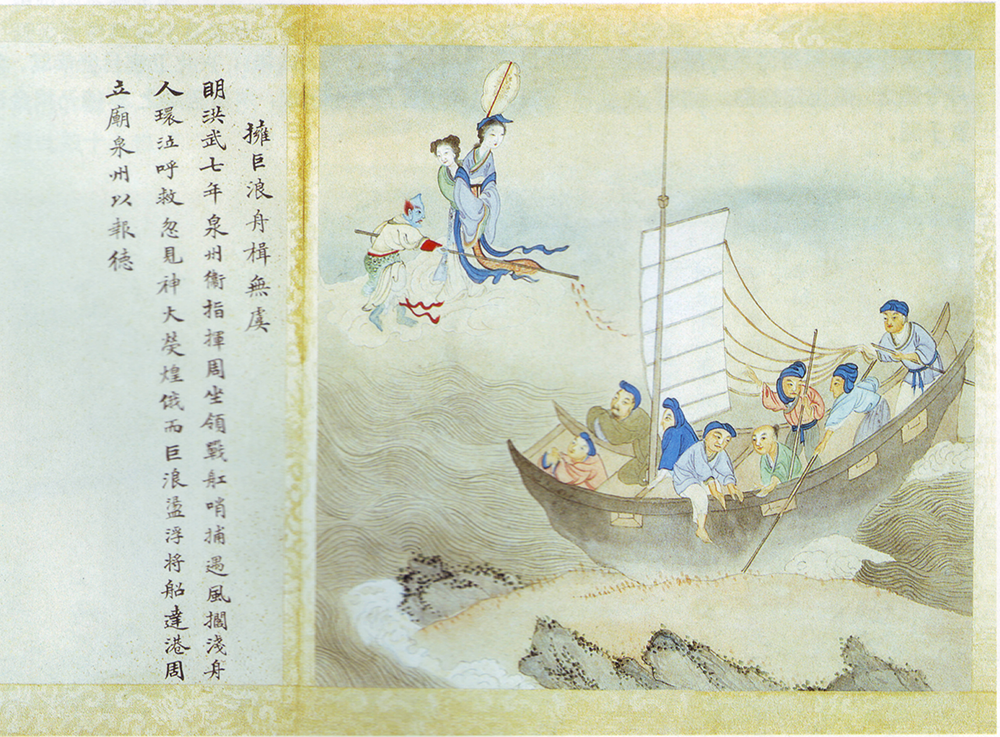 擁巨浪舟楫無虞
明洪武七年泉州衛指揮周坐領戰舡哨捕遇風擱淺舟
人環泣呼救忽見神火熒煌俄而巨浪盪浮将船達港周
立廟泉州以報德